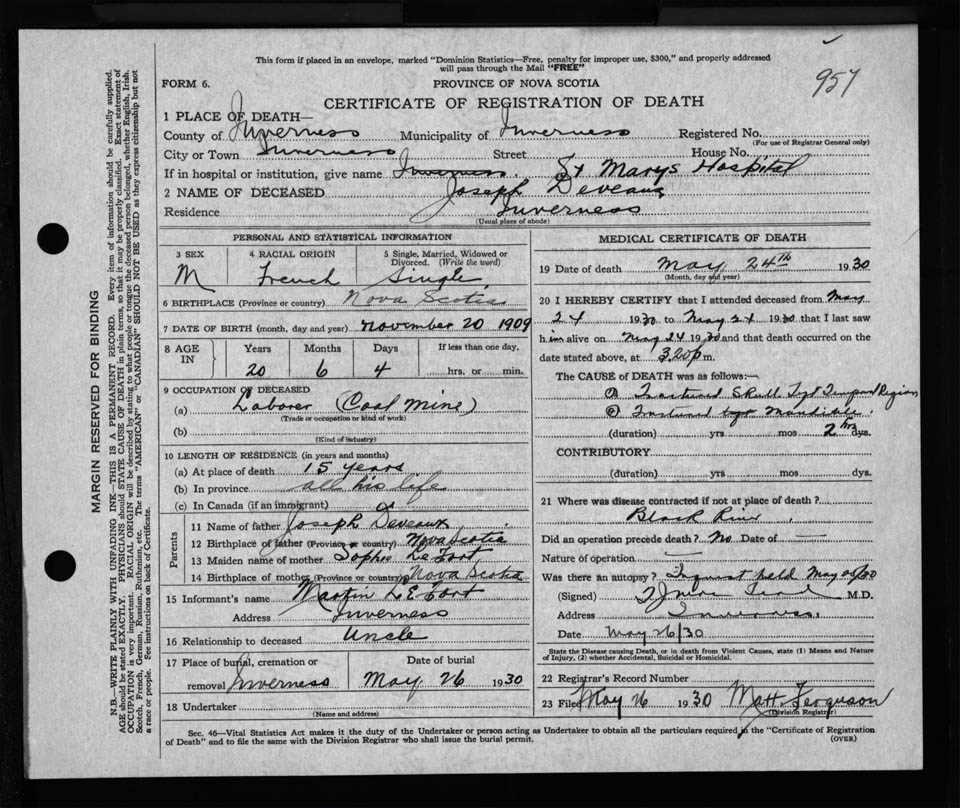 This form if placed in an envelope, marked "Dominion Statistics—Free, penalty for improper use, $300," and properly addressed
will pass through the Mail "FREE"
957
FORM 6.
PROVINCE OF NOVA SCOTIA
CERTIFICATE OF REGISTRATION OF DEATH
1 PLACE OF DEATH—
County of Inverness Municipality of Inverness Registered No.
(For use of Registrar General only)
City or Town Inverness Street House No.
If in hospital or institution, give name Inverness. St Marys Hospital
2 NAME OF DECEASED Joseph Deveaux
Residence Inverness
(Usual place of abode)
PERSONAL AND STATISTICAL INFORMATION
3 SEX 4 RACIAL ORIGIN 5 Single, Married, Widowed or
Divorced. (Write the word)
M French Single
6 BIRTHPLACE (Province or country) Nova Scotia
7 DATE OF BIRTH (month, day and year) November 20 1909
8 AGE IN Years Months Days If less than one day,
20 6 4 hrs. or min.
9 OCCUPATION OF DECEASED
(a) Laborer (Coal Mine)
(Trade or occupation or kind of work)
(b)
(Kind of industry)
10 LENGTH OF RESIDENCE (in years and months)
(a) At place of death 15 years
(b) In province all his life
(c) In Canada (if an immigrant)
Parents
11 Name of father Joseph Deveaux
12 Birthplace of father (Province or country) Nova Scotia
13 Maiden name of mother Sophie Le Fort
14 Birthplace of mother (Province or country) Nova Scotia
15 Informant's name Martin LE Fort
Address Inverness
16 Relationship to deceased Uncle
17 Place of burial, cremation or
removal Inverness
Date of burial
May 26 1930
18 Undertaker
(Name and address)
MEDICAL CERTIFICATE OF DEATH
19 Date of death May 24th 1930
(Month, day and year)
20 I HEREBY CERTIFY that I attended deceased from May
24 1930 to May 24 1930 that I last saw
him alive on May 24 1930 and that death occurred on the
date stated above, at 3.20 p m.
The CAUSE of DEATH was as follows:—
Fractured Skull Region
Fractured Mandible
(duration) yrs mos 2 hrs dys.
CONTRIBUTORY
(duration) yrs mos dys.
21 Where was disease contracted if not at place of death?
Black River
Did an operation precede death? No Date of —
Nature of operation —
Was there an autopsy? Inquest held May 26/30
(Signed) M.D.
Address Inverness
Date May 26/30
State the Disease causing Death, or in death from Violent Causes, state (1) Means and Nature
of Injury, (2) whether Accidental, Suicidal or Homicidal.
22 Registrar's Record Number
23 Filed May 26 1930 Matt. Ferguson
(Division Registrar)
Sec. 46—Vital Statistics Act makes it the duty of the Undertaker or person acting as Undertaker to obtain all the particulars required in the "Certificate of Registration
of Death" and to file the same with the Division Registrar who shall issue the burial permit. (OVER)
MARGIN RESERVED FOR BINDING
N.B.—WRITE PLAINLY WITH UNFADING INK—THIS IS A PERMANENT RECORD. Every item of information should be carefully supplied.
AGE should be stated EXACTLY. PHYSICIANS should STATE CAUSE OF DEATH in plain terms, so that it may be properly classified. Exact statement of
OCCUPATION is very important. RACIAL ORIGIN will be described by stating to what people or tongue the deceased person belonged, whether English, Irish,
Scotch, French, German, Russian, Ruthenian, etc. The terms "AMERICAN" or "CANADIAN" SHOULD NOT BE USED as they express citizenship but not
a race or people. See instructions on back of Certificate.